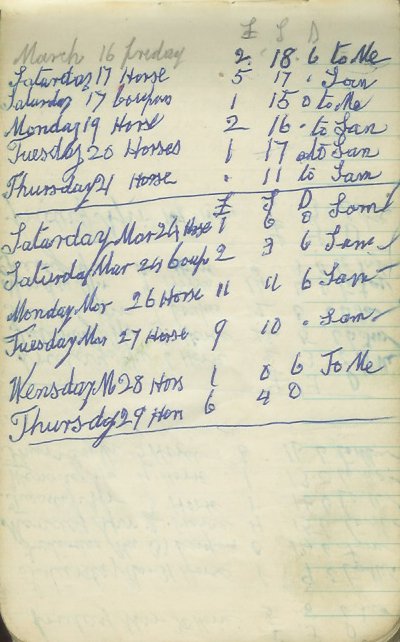 £ S D
March 16 friday 2 18 6 to Me
Saturday 17 Horse 5 17 . Sam
Saturday 17 Coupon 1 15 0 to Me
Monday 19 Horse 2 16 . to Sam
Tuesday 20 Horses 1 17 to Sam
Thursday 21 Horse . 11 to Sam
£ S D
Saturday Mar 24 Horse 1 6 0 Sam
Saturday Mar 24 Coup 2 3 6 Sam
Monday Mar 26 Horse 11 11 6 Sam
Tuesday Mar 27 Horse 9 10 . Sam
Wensday M 28 Hors 1 0 6 To Me
Thursday 29 Hors 6 4 0